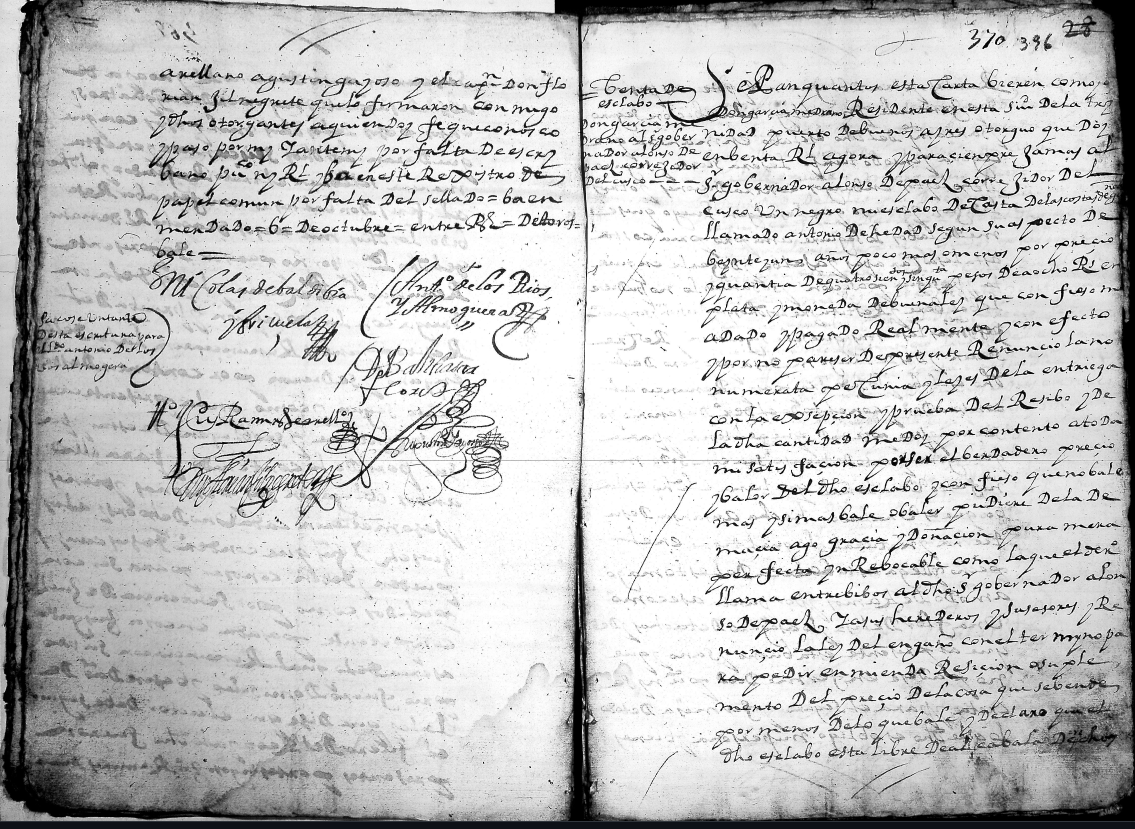 arellano agustin gayoso y el capn Don flo
rian gil negrete que lo firmaron con migo
y dhos otorgantes a quien Doy fe que conosco
y paso por my y testigos por falta De escri
bano puco ny Rl y ba en este Rexistro de
papel comun por falta Del sellado = ba en
mendado = 6 = De octubre = entre Rs =
bale =
Nicolas de baldibia
y brisuela
Anto de los Rios
y Almoguera
saco se un tanto
Desta escritura para
antonio De los
Rios almogera
Balthasar
Luis Ramirez de arellano
370 396 28
benta De
esclabo
Don garcia m
reno al gober
nador alonso De
paez correxidor
Del cusco
Sepan quantos esta Carta bieren como yo
Don garcia mreno Residente en esta siud De la tri
nidad puerto De buenos ayres otorgo que Doy
en benta Rl agora y para cienpre Jamas al
sr gobernador alonso De paez correxidor Del
cusco Un negro my esclabo De casta De las costas
llamado antonio De hedad segun su aspecto De
beinte y un años poco mas o menos por precio
y quantia De quatrosientos y pesos De a ocho Rs en
plata y moneda De buenales que confieso m
a Dado y pagado Real mente y con efecto
y por no pareser De presente Renuncio la no
numerata pecunia y leyes De la entriega
con la exsepcion y prueba Del Resibo y De
la dha cantidad me Doy por contento a toda
mi satisfacion por ser el berdadero precio
y balor Del dho esclabo y confieso que no bale
mas y si mas bale o baler pudiere De la De
macia ago gracia y Donacion pura mera
perfecta yn Rebocable como la que el dero
llama entre bibos al dho sr gobernador alon
so De paez y a sus herederos y susesores y Re
nuncio la ley Del engaño con el termyno pa
ra pedir enmienda Resicion o suple
mento Del precio De la cosa que se bende
por menos De lo que bale y Declaro que el
dho esclabo esta libre De alcabala De